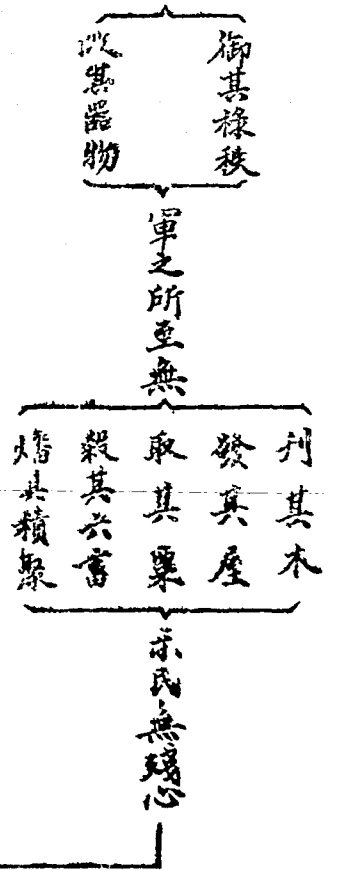 御其祿秩
収其器物
軍之所至無
刋其木
發其屋
取其粟
殺其六畜
燔其積聚
示民無殘心